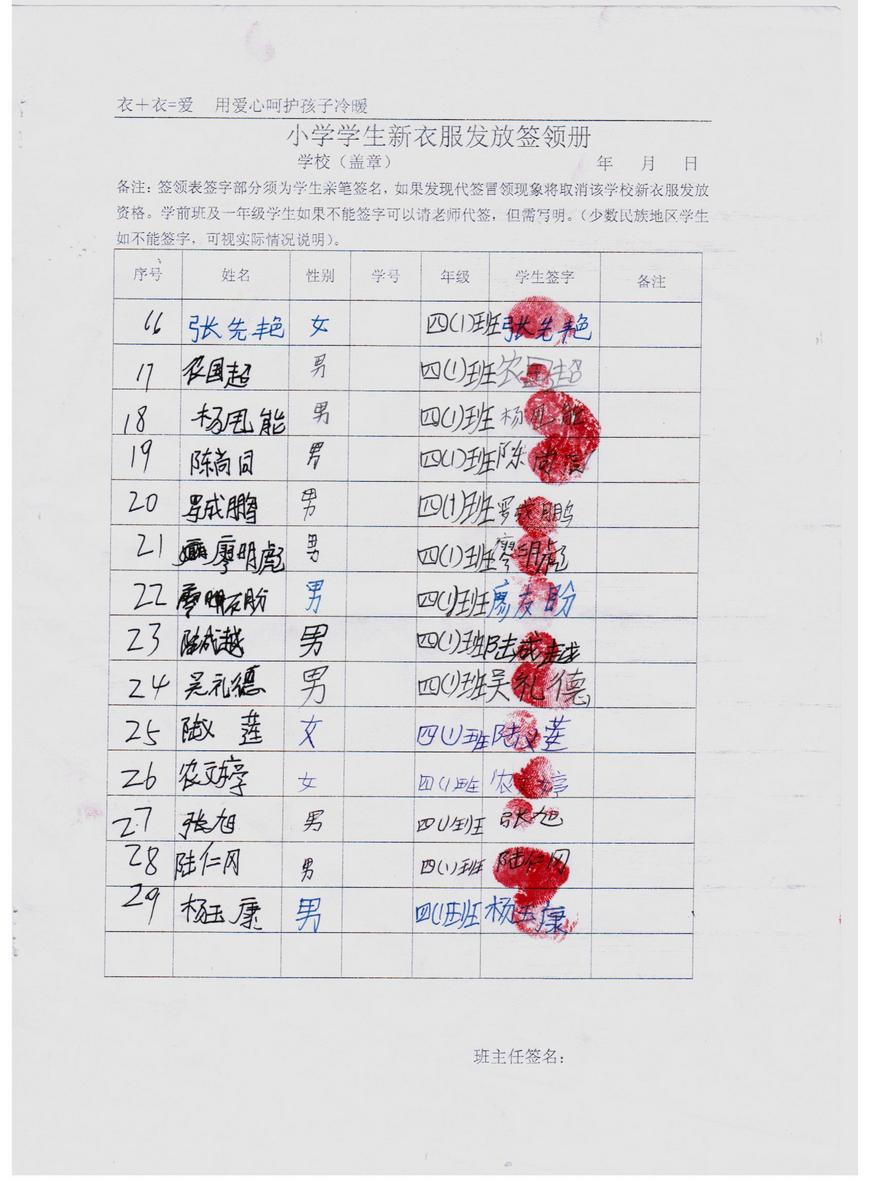 衣＋衣=爱 用爱心呵护孩子冷暖
小学学生新衣服发放签领册
学校（盖章） 年 月 日
备注：签领表签字部分须为学生亲笔签名，如果发现代签冒领现象将取消该学校新衣服发放
资格。学前班及一年级学生如果不能签字可以请老师代签，但需写明。（少数民族地区学生
如不能签字，可视实际情况说明）。
序号 姓名 性别 学号 年级 学生签字 备注
16 张先艳 女 四(1)班 张先艳
17 农国超 男 四(1)班 农国超
18 杨凤能 男 四(1)班 杨 能
19 陈尚同 男 四(1)班 陈尚
20 罗成鹏 男 四(1)班 罗成鹏
21 廖明彪 男 四(1)班 廖明彪
22 廖 盼 男 四(1)班 廖友盼
23 陆成越 男 四(1)班 陆成越
24 吴礼德 男 四(1)班 吴礼德
25 陆义莲 女 四(1)班 陆义莲
26 农文婷 女 四(1)班 农 婷
27 张旭 男 四(1)班 张旭
28 陆仁冈 男 四(1)班 陆仁冈
29 杨玉康 男 四(1)班 杨玉康
班主任签名：